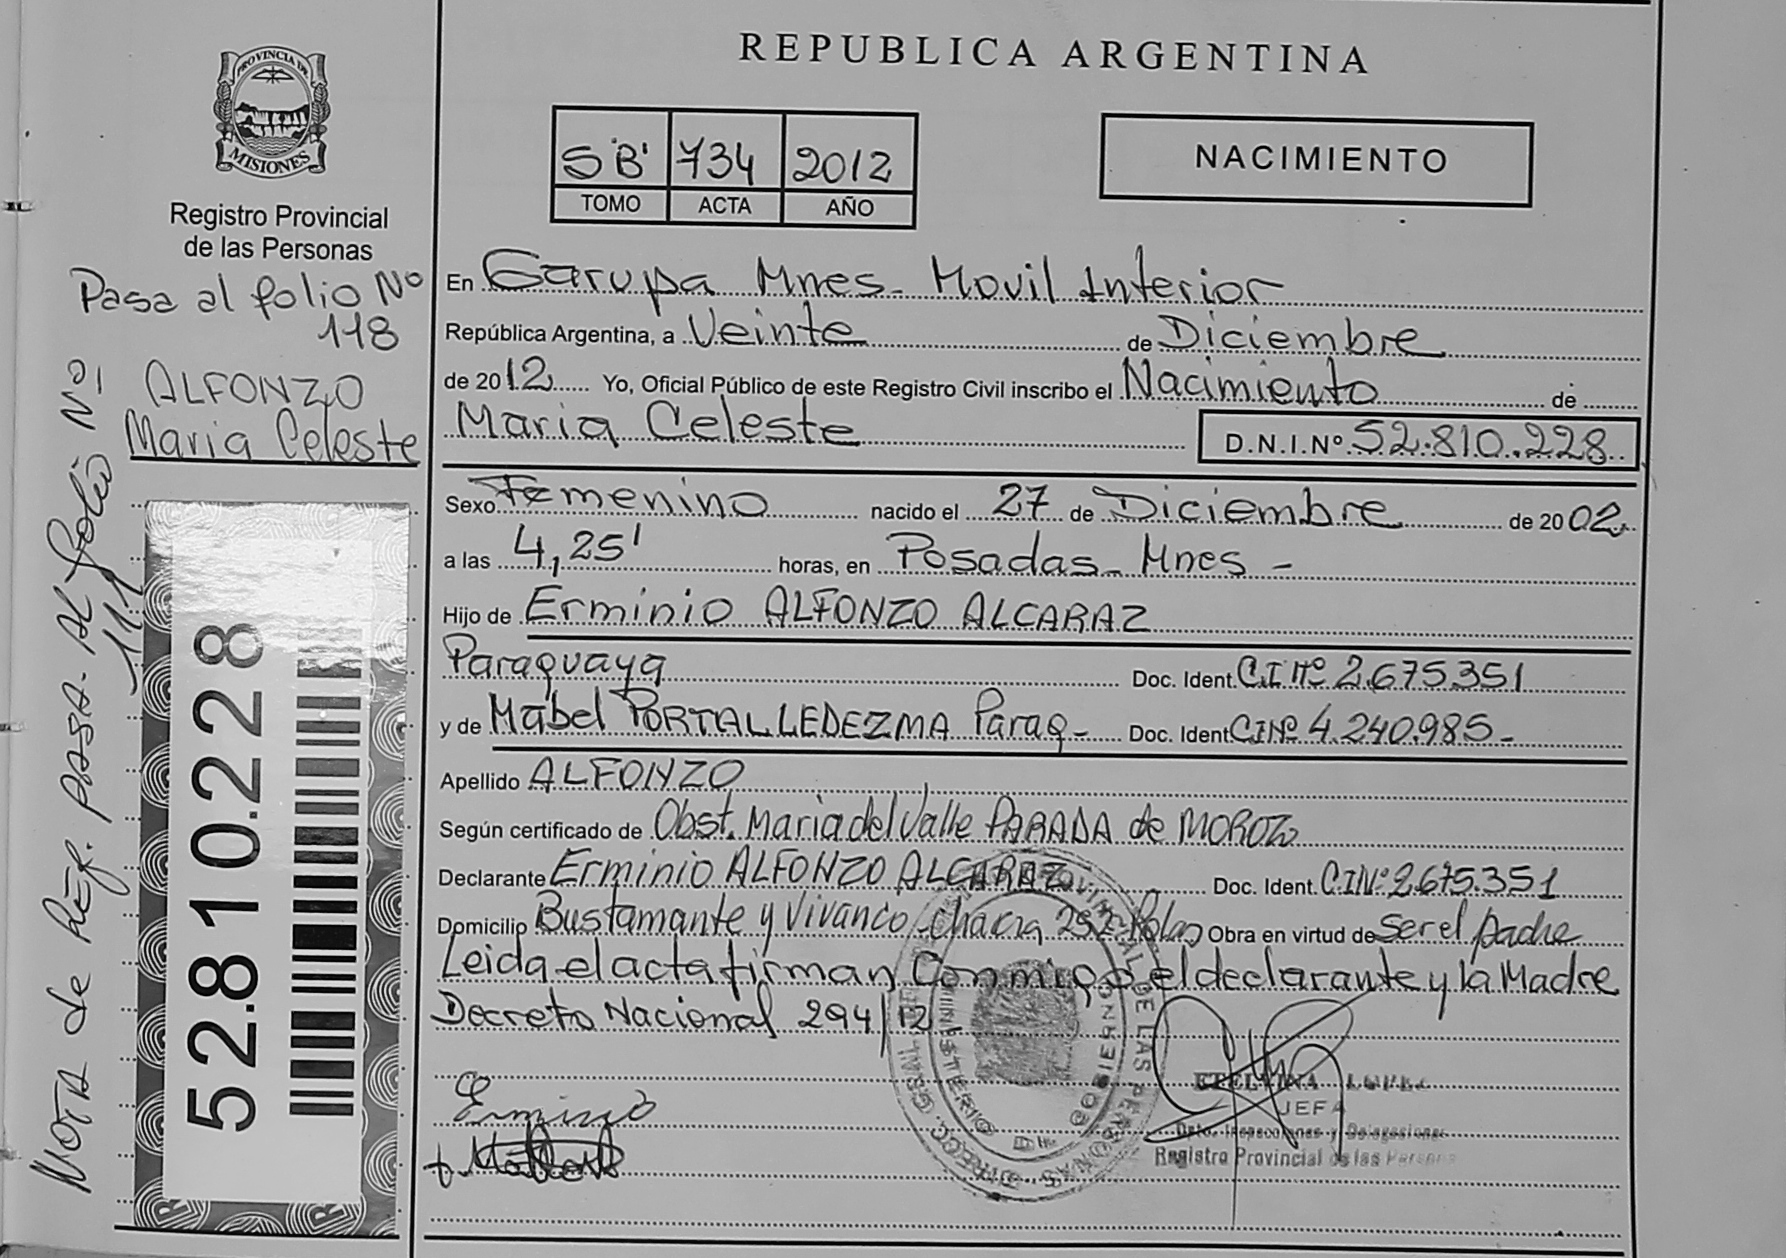 PROVINCIA DE
MISIONES
Registro Provincial
de las Personas
Pasa al folio Nº
118
ALFONZO
Maria Celeste
Nota de Ref. pasa al folio Nº
111
52.810.228
REPUBLICA ARGENTINA
5'B' 734 2012
TOMO ACTA AÑO
NACIMIENTO
En Garupa Mnes - Movil Interior
República Argentina, a Veinte de Diciembre
de 2012 Yo, Oficial Público de este Registro Civil inscribo el Nacimiento de
Maria Celeste D.N.I.Nº 52.810.228
Sexo Femenino nacido el 27 de Diciembre de 2002
a las 4,25' horas, en Posadas - Mnes -
Hijo de Erminio ALFONZO ALCARAZ
Paraguaya Doc. Ident. C.I Nº 2.675.351
y de Mabel PORTAL LEDEZMA Parag - Doc. Ident CI Nº 4.240.985 -
Apellido ALFONZO
Según certificado de Obst. Maria del Valle PARADA de MOROZ
Declarante Erminio ALFONZO ALCARAZ Doc. Ident. C.I Nº 2.675.351
Domicilio Bustamante y Vivanco - Chacra 252 - Obra en virtud de ser el padre
Leida el acta firman Conmigo el declarante y la Madre
Decreto Nacional 294/12
Erminio
JEFA
Dpto. Inspecciones y Delegaciones
Registro Provincial de las Personas